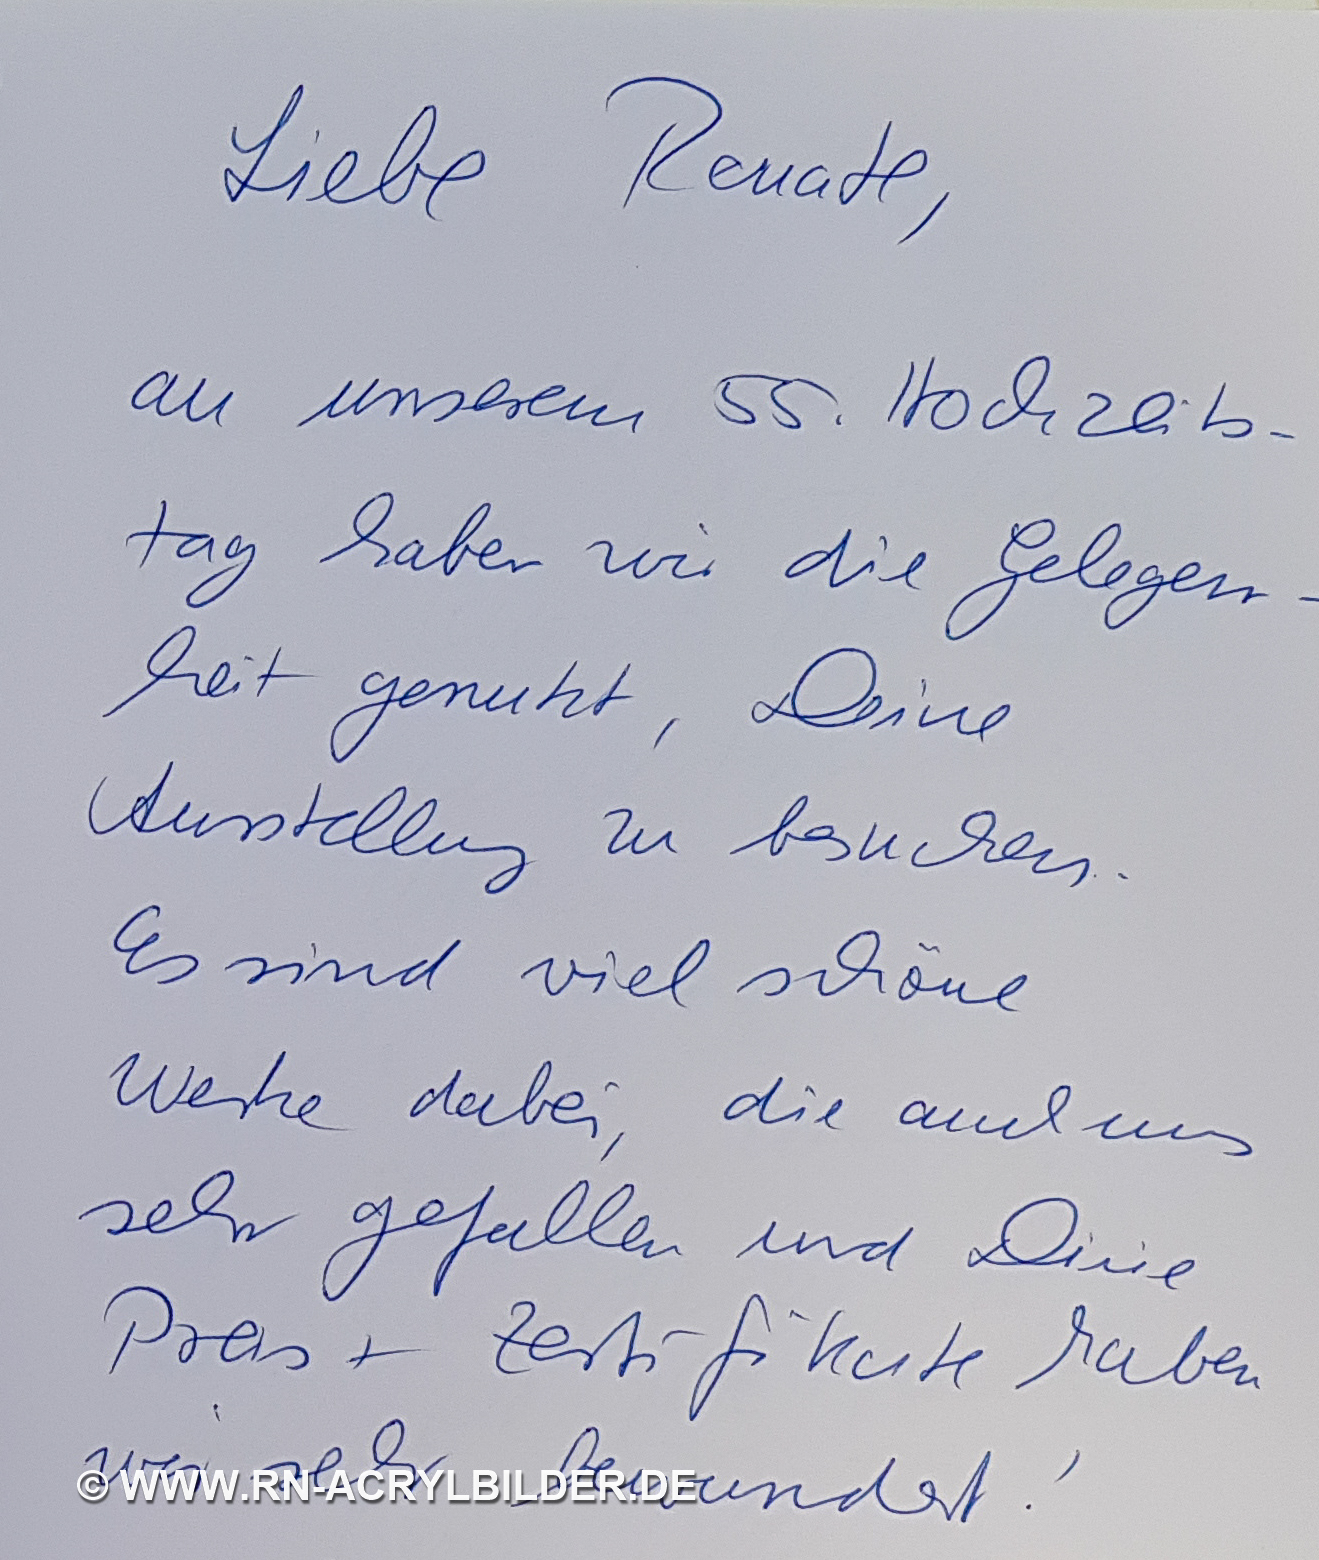 Liebe Renate,
an unserem 55. Hochzeits-
tag haben wir die Gelegen-
heit genutzt, Deine
Ausstellung zu besuchen.
Es sind viel schöne
Werke dabei, die auch uns
sehr gefallen und Deine
Preis + Zertifikate haben
wir sehr bewundert!
© WWW.RN-ACRYLBILDER.DE